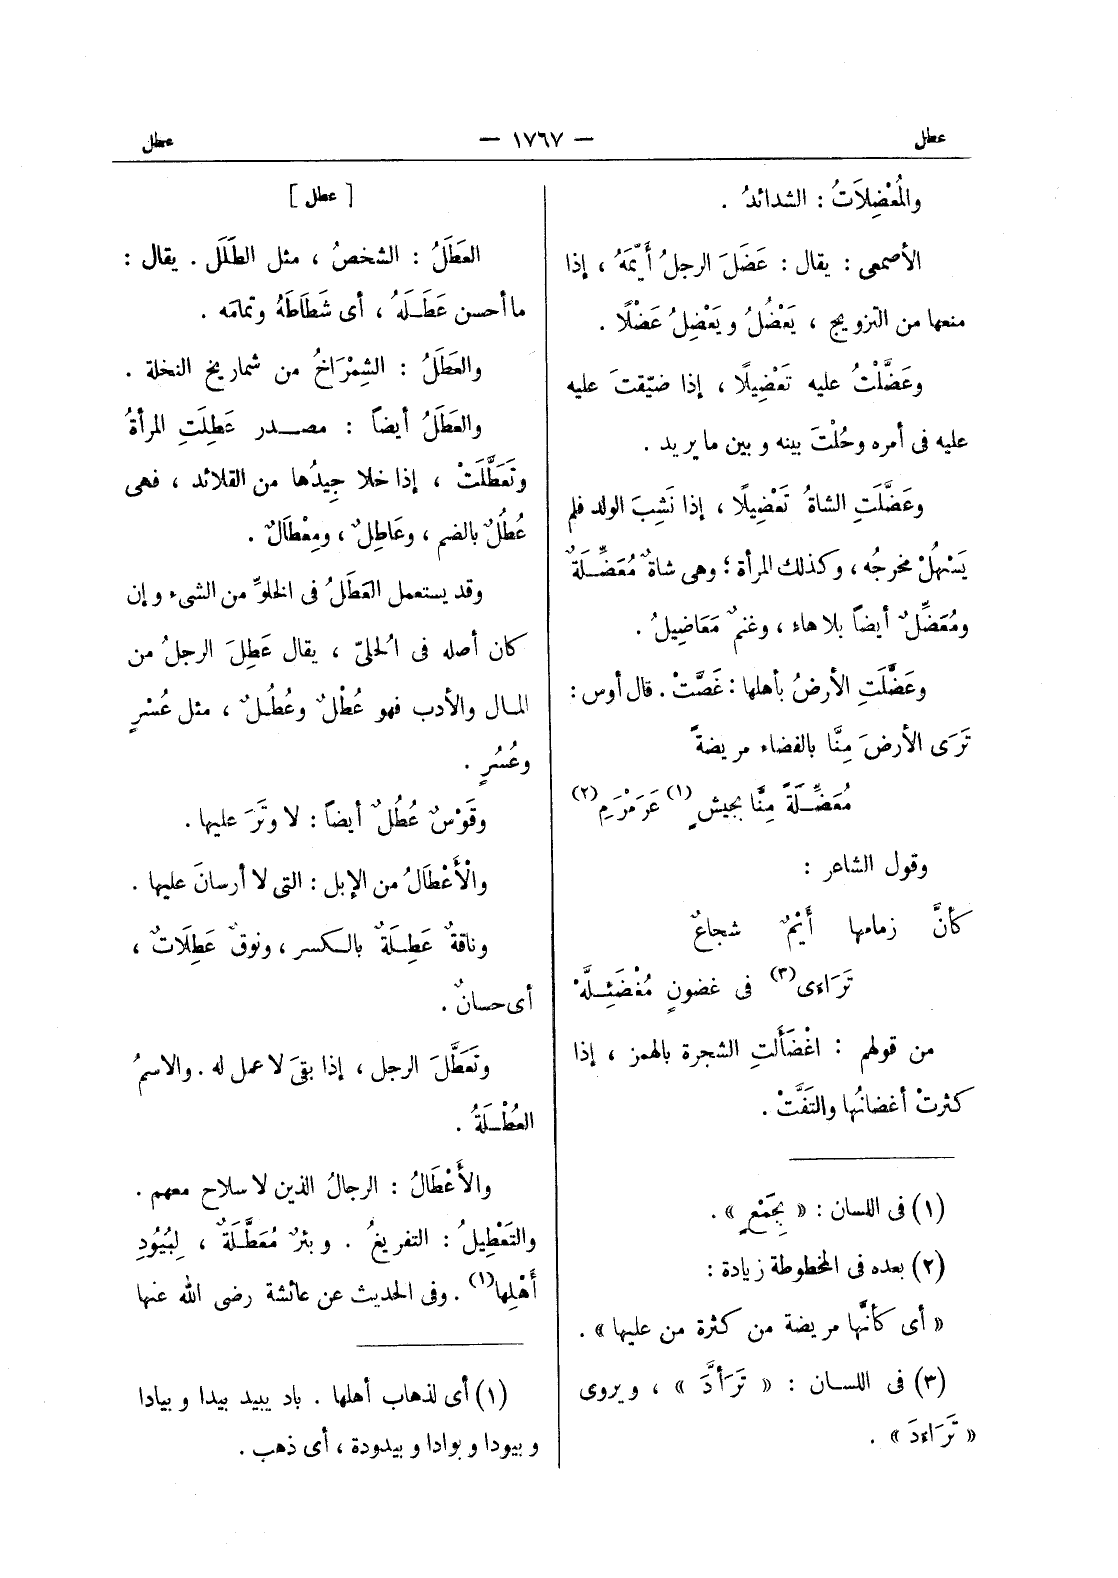 عطل
— ١٧٦٧ —
عطل
والمُعْضِلَاتُ : الشدائدُ .
الأصمعى : يقال : عَضَلَ الرجلُ أَيِّمَهُ ، إذا
منعها من التزويج ، يَعْضُلُ ويَعْضِلُ عَضْلًا .
وعَضَّلْتُ عليه تَعْضِيلًا ، إذا ضيّقتَ عليه
عليه فى أمره وحُلْتَ بينه وبين ما يريد .
وعَضَّلَتِ الشاةُ تَعْضِيلًا ، إذا نَشِبَ الولد فلم
يَسْهُلْ مخرجُه ، وكذلك المرأة ؛ وهى شاةٌ مُعَضِّلَةٌ
ومُعَضِّلٌ أيضاً بلا هاء ، وغنمٌ مَعَاضِيلُ .
وعَضَّلَتِ الأرضُ بأهلها : غَصَّتْ . قال أوس :
تَرَى الأرضَ مِنَّا بالفضاء مريضةً
مُعَضِّلَةً مِنَّا بجيشٍ (١) عَرَمْرَمِ (٢)
وقول الشاعر :
كأنَّ زمامها أَيْمٌ شجاعٌ
تَرَاءى (٣) فى غضونٍ مُغْضَئِلَّهْ
من قولهم : اغْضَأَلَّتِ الشجرة بالهمز ، إذا
كثرتْ أغضانُها والتَفَّتْ .
(١) فى اللسان : « بِجَمْعٍ » .
(٢) بعده فى المخطوطة زيادة :
« أى كأنَّها مريضة من كثرة من عليها » .
(٣) فى اللسان : « تَرَأدَّ » ، ويروى
« تَرَاءدَ » .
[ عطل ]
العَطَلُ : الشخصُ ، مثل الطَلَلِ . يقال :
ما أحسن عَطَلَهُ ، أى شَطَاطَهُ وتمامَه .
والعَطَلُ : الشِمْرَاخُ من شماريخ النخلة .
والعَطَلُ أيضاً : مصدر عَطِلَتِ المرأةُ
وتَعَطَّلَتْ ، إذا خلا جِيدُها من القلائد ، فهى
عُطُلٌ بالضم ، وعَاطِلٌ ، ومِعْطَالٌ .
وقد يستعمل العَطَلُ فى الخلوِّ من الشىء وإن
كان أصله فى الحُلىّ ، يقال عَطِلَ الرجلُ من
المال والأدب فهو عُطْلٌ وعُطُلٌ ، مثل عُسْرٍ
وعُسُرٍ .
وقَوْسٌ عُطُلٌ أيضاً : لا وتَرَ عليها .
والْأَعْطَالُ من الإبل : التى لا أرسانَ عليها .
وناقةٌ عَطِلَةٌ بالكسر ، ونوقٌ عَطِلَاتٌ ،
أى حسانٌ .
وتَعَطَّلَ الرجل ، إذا بقىَ لا عمل له . والاسمُ
العُطْلَةُ .
والأَعْطَالُ : الرجالُ الذين لا سلاح معهم .
والتَعْطِيلُ : التفريغُ . وبئرٌ مُعَطَّلَةٌ ، لِبُيُودِ
أَهْلِها (١) . وفى الحديث عن عائشة رضى الله عنها
(١) أى لذهاب أهلها . باد يبيد بيدا وبيادا
وبيودا وبوادا وبيدودة ، أى ذهب .